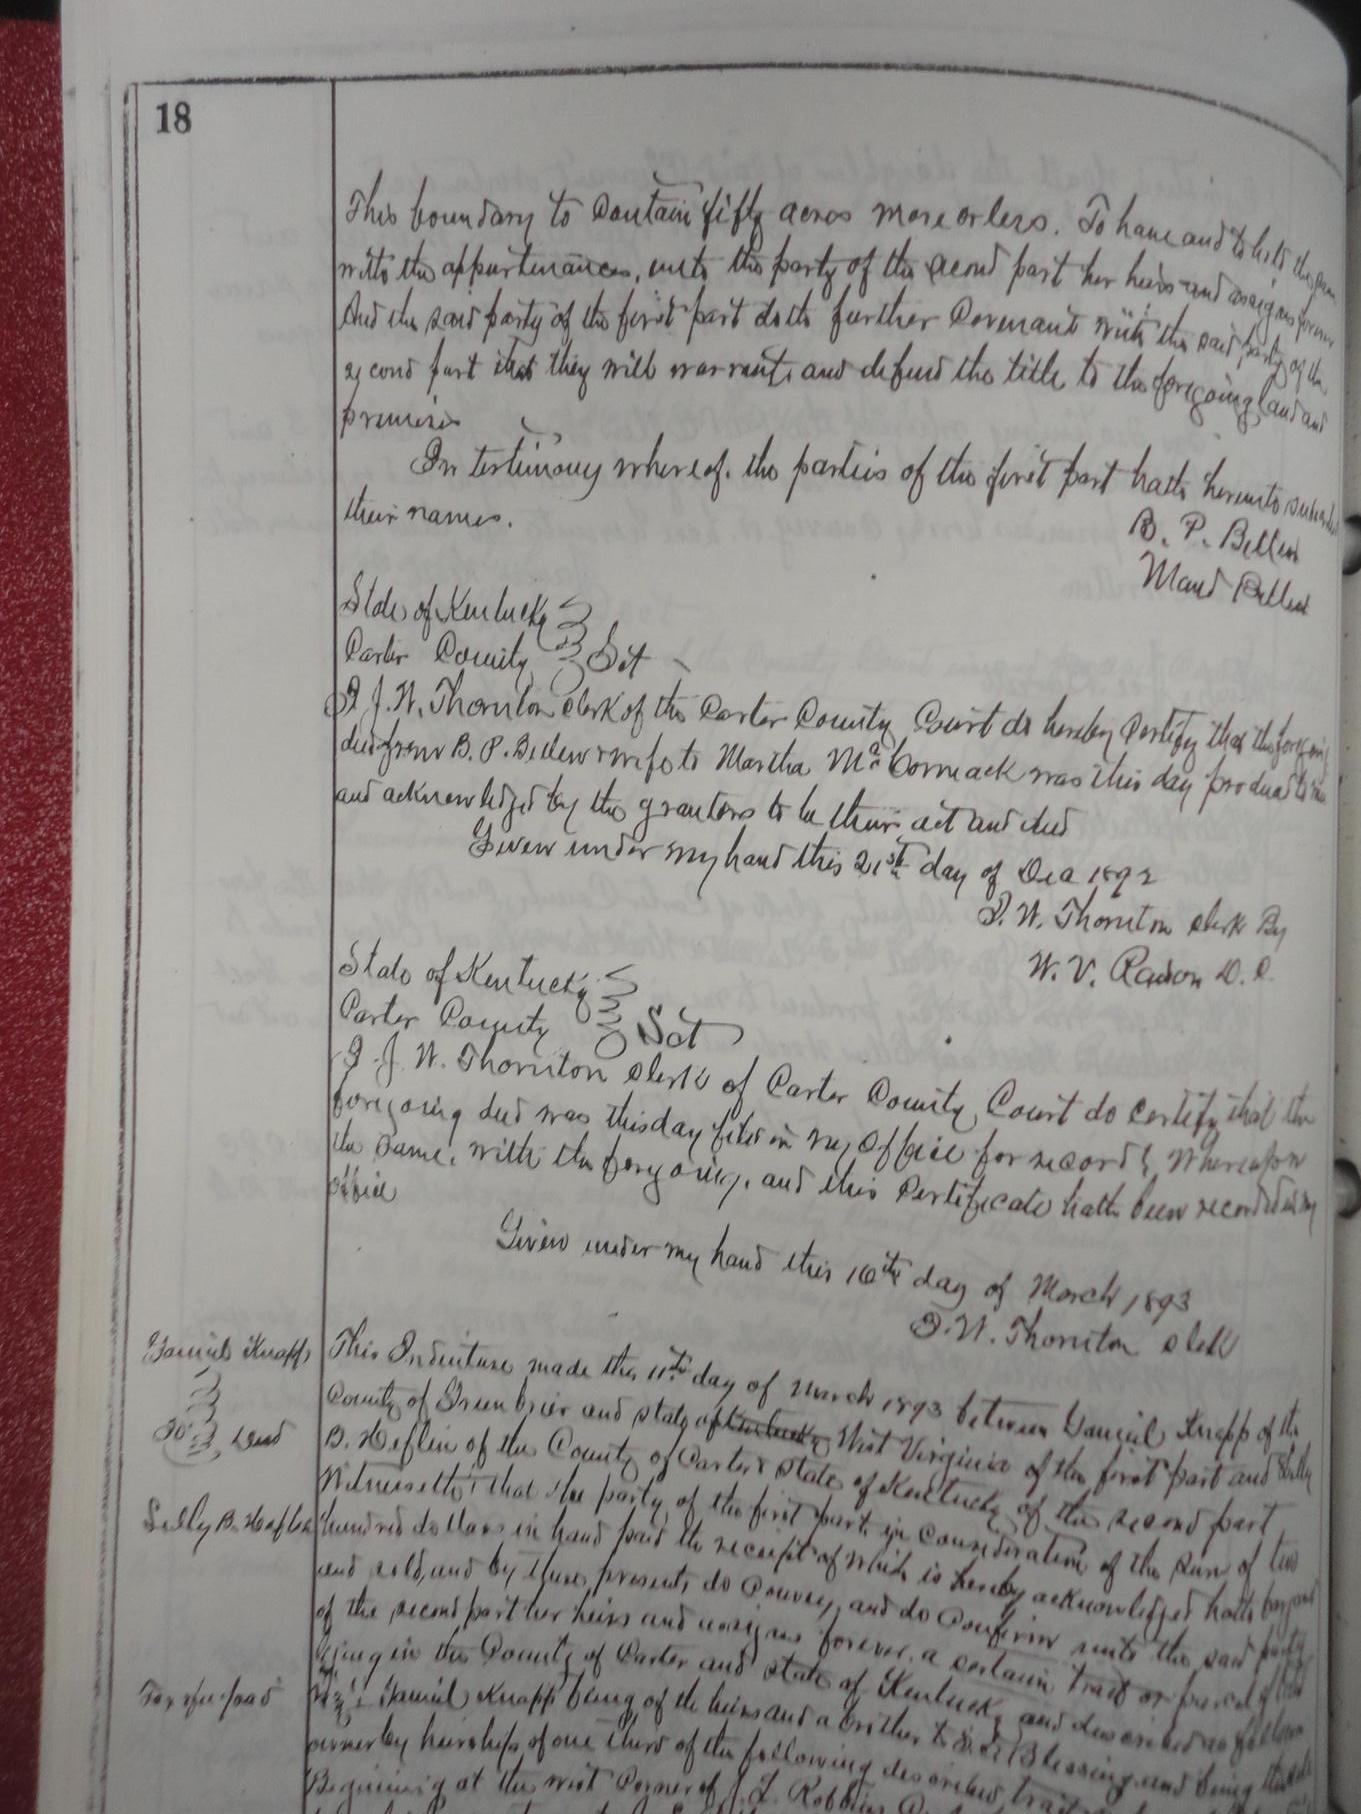 18
This boundary to Contain fifty acres more or less. To have and to hold the
with the appurtenances, unto the party of the second part her heirs and assigns forever
And the said party of the first part doth further Covenant with the said party of the
second part that they will warrant and defend the title to the foregoing land and
premises
In testimony whereof. the parties of the first part hath hereunto
their names.
B. P. Bellew
Maud Bellew
State of Kentucky
Carter County Sct
I J. W. Thornton Clerk of the Carter County Court do hereby Certify that the foregoing
deed from B. P. Bellew & wife to Martha McCormack was this day produced to me
and acknowledged by the grantors to be their act and deed
Given under my hand this 21st day of Dec 1892
J. W. Thornton Clerk By
W. V. D. C.
State of Kentucky
Carter County Sct
I J. W. Thornton Clerk of Carter County Court do certify that the
foregoing deed was this day filed in my Office for record & Whereupon
the same, with the foregoing, and this Certificate hath been recorded in my
office
Given under my hand this 16th day of March 1893
J. W. Thornton Clerk
Daniel Knapp
To Deed
Lilly B. Heflin
This Indenture made the 11th day of March 1893 between Daniel Knapp of the
County of Greenbrier and state of Kentucky West Virginia of the first part and Lilly
B. Heflin of the County of Carter & State of Kentucky of the second part
Witnesseth: that the party of the first part, in Consideration of the sum of two
hundred dollars in hand paid the receipt of which is hereby acknowledged hath bargained
and sold, and by these presents, do Convey, and do Confirm unto the said party
of the second part her heirs and assigns forever, a certain tract or parcel of land
lying in the County of Carter and state of Kentucky and described as follows
Viz: Daniel Knapp being of the heirs and a brother to Blessing and being the
owner by heirship of one third of the following described tract
Beginning at the west Corner of J. L. Robbins